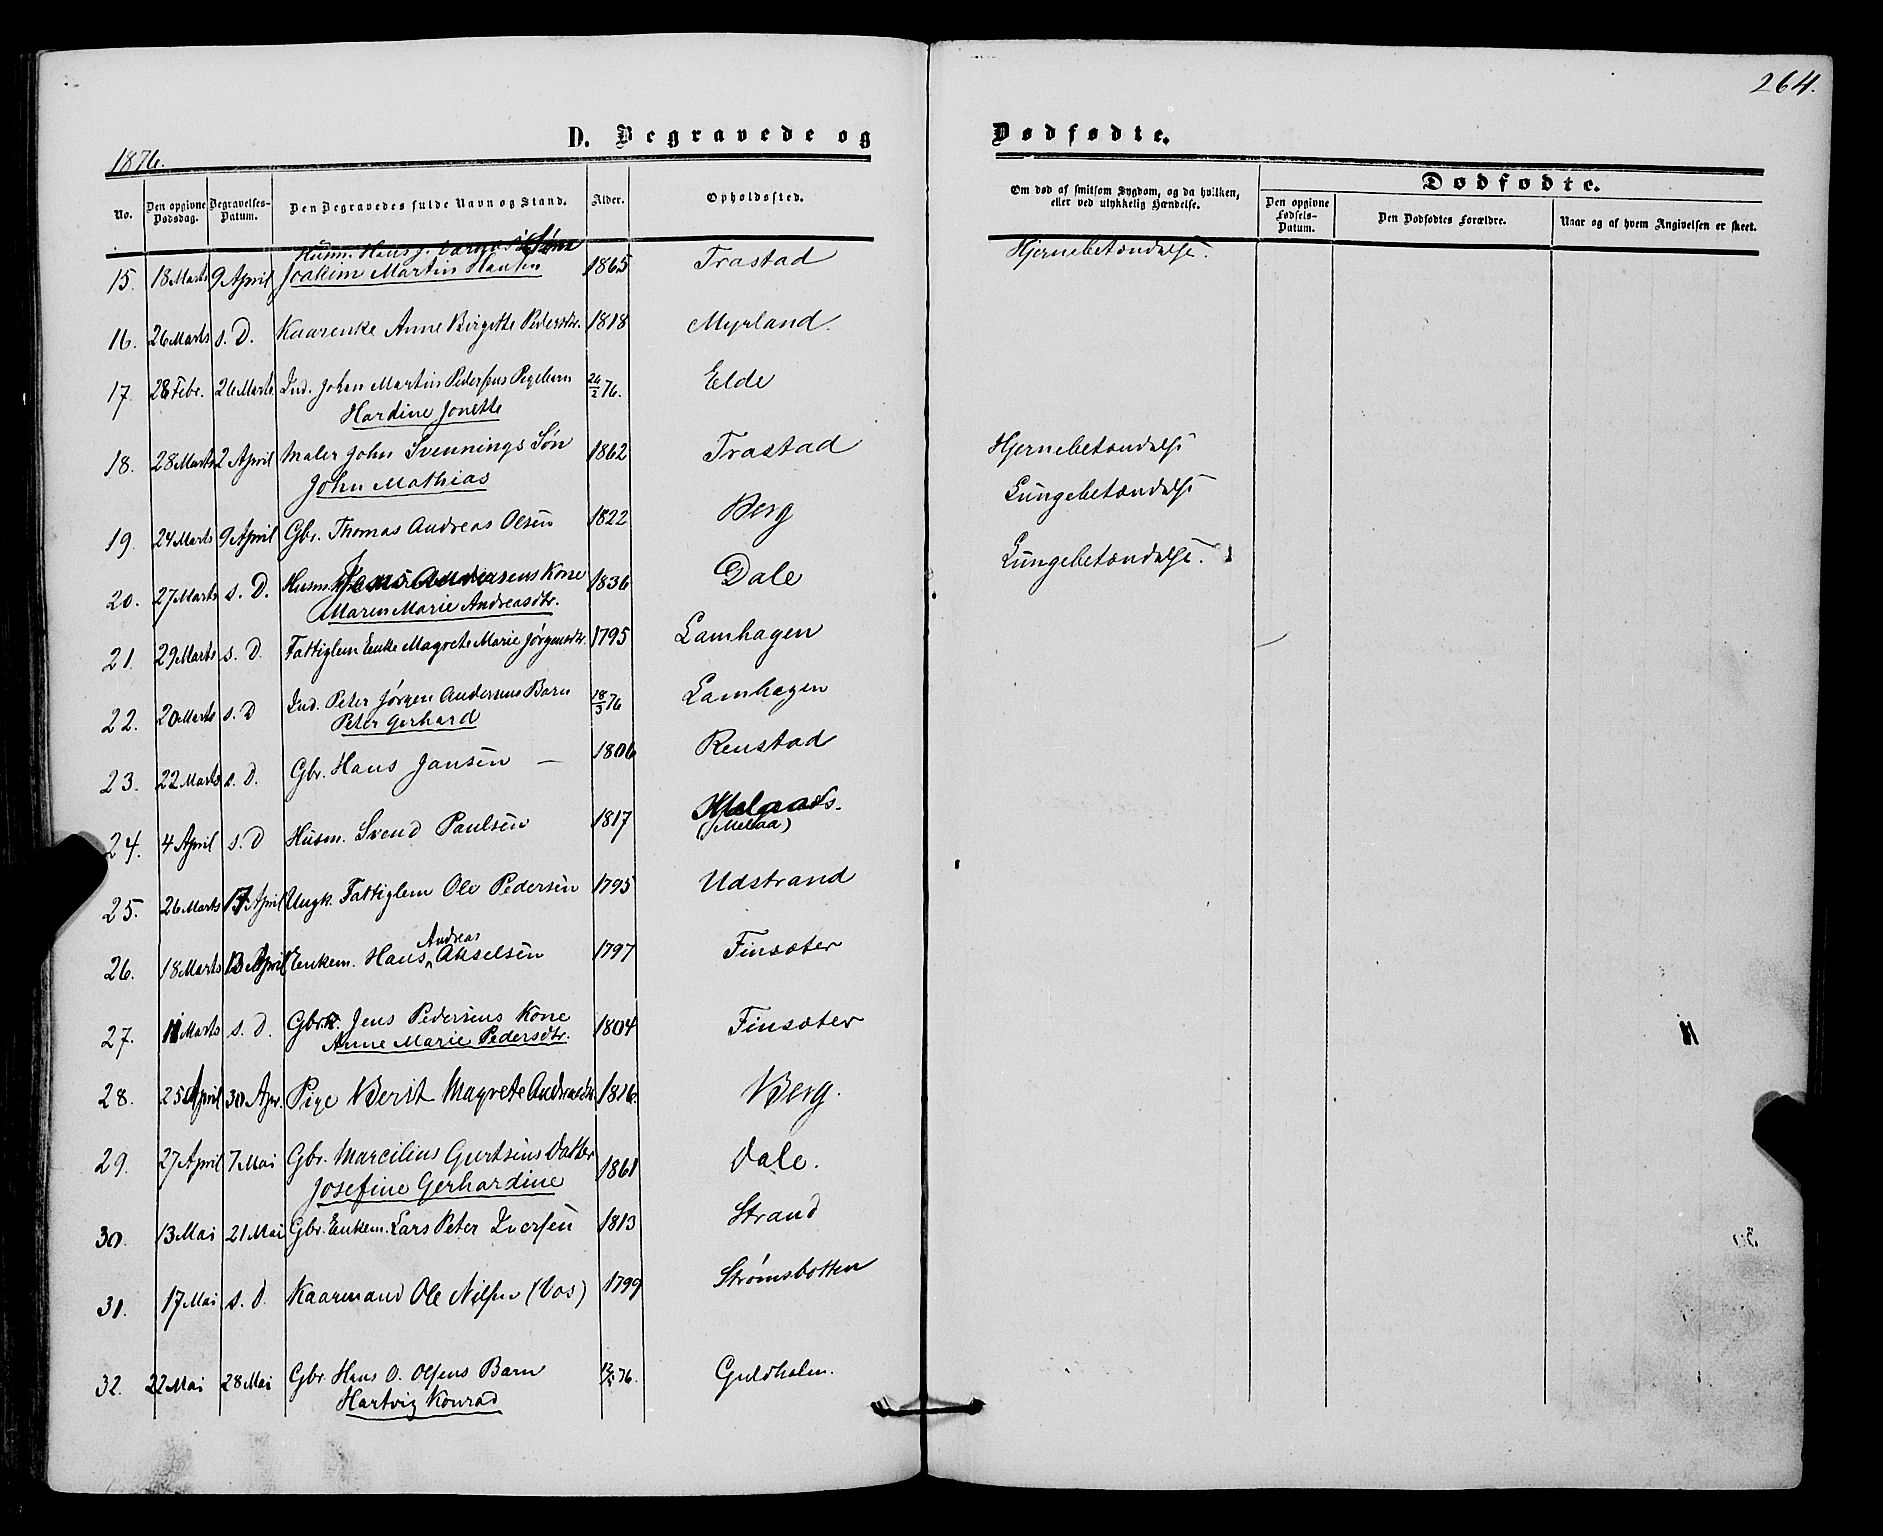 264.
D. Begravede og Dødfødte.
1876.
No. Den opgivne Dødsdag. Begravelses-Datum. Den Begravedes fulde Navn og Stand. Alder. Opholdssted. Om død af smitsom Sygdom, og da hvilken, eller ved ulykkelig Hændelse. Dødfødte. Den opgivne Fødsels-Datum. Den Dødfødtes Forældre. Naar og af hvem Angivelsen er skeet.
Husm. Hans J. Søn
15. 18 Marts 9 April Joakim Martin Hansen 1865 Trastad Hjernebetændelse.
16. 26 Marts s. D. Kaarenke Anne Birgitte Pedersdtr. 1818 Myrland.
17. 28 Febr. 26 Marts Ind. Johan Martin Pedersens Pigebarn 26/2 76. Elde
Hardine Jonette
18. 28 Marts 2 April Maler John Svennings Søn 1862 Trastad Hjernebetændelse
John Mathias
19. 24 Marts 9 April Gbr. Thomas Andreas Olsen 1822 Berg Lungebetændelse
20. 27 Marts s. D. Husm. Jens Andreasens Kone 1836 Dale Lungebetændelse.
Maren Marie Andreasdtr.
21. 29 Marts s. D. Fattiglem Enke Magrete Marie Jørgensdtr. 1795 Lamhagen
22. 20 Marts s. D Ind. Peter Jørgen Andersens Barn 18/3 76 Lamhagen
Peter Gerhard
23. 22 Marts s. D. Gbr. Hans Jansen — 1806 Renstad
24. 4 April s. D Husm. Svend Paulsen 1817
(Melaa)
25. 26 Marts 17 April Ungk. Fattiglem Ole Pedersen 1795 Udstrand
Andreas
26. 18 Marts 13 April Enkem. Hans Akselsen 1797 Finsæter
27. 11 Marts s. D. Gbr. Jens Pedersens Kone 1804 Finsæter
Anne Marie Pedersdtr.
28. 25 April 30 Apr. Pige Berit Magrete Andreasdtr. 1816. Berg.
29. 27 April 7 Mai Gbr. Marcilius Gjertsens Datter 1861 Dale.
Josefine Gerhardine
30. 13 Mai 21 Mai Gbr. Enkem. Lars Peter Iversen 1813 Strand
31. 17 Mai s. D. Kaarmand Ole Nilsen (Vos) 1799 Strømsbotten
32. 22 Mai 28 Mai Gbr. Hans O. Olsens Barn 12/5 76. Guldholm.
Hartvig Konrad